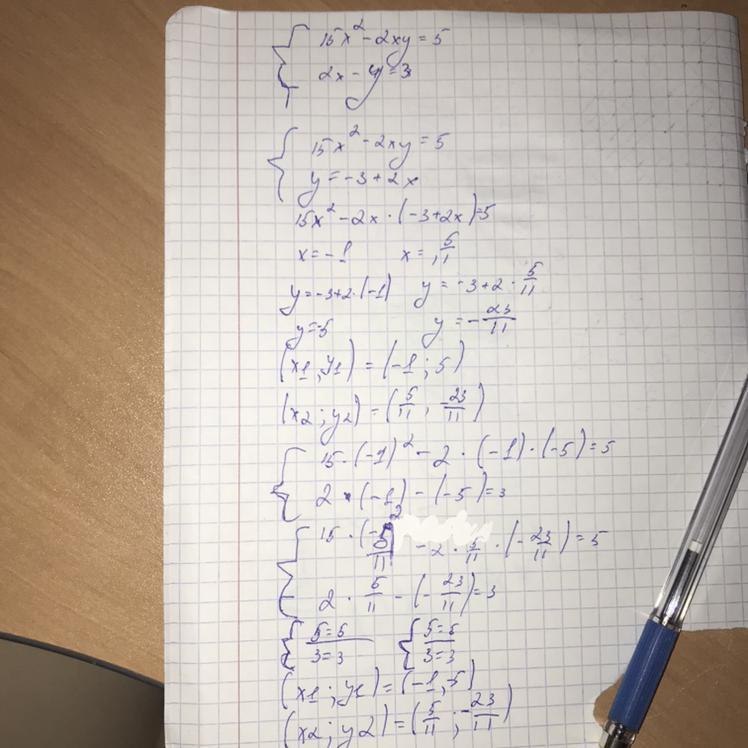 15x² - 2xy = 5
2x - y = 3
15x² - 2xy = 5
y = -3 + 2x
15x² - 2x · (-3+2x) = 5
x = -1 x = 5/11
y = -3+2·(-1) y = -3+2 · 5/11
y = -5 y = -23/11
(x1 ; y1) = (-1 ; 5)
(x2 ; y2) = (5/11 ; -23/11)
15 · (-1)² - 2 · (-1) · (-5) = 5
2 · (-1) - (-5) = 3
15 · (5/11)² - 2 · 5/11 · (-23/11) = 5
2 · 5/11 - (-23/11) = 3
5=5 5=5
3=3 3=3
(x1 ; y1) = (-1 ; -5)
(x2 ; y2) = (5/11 ; -23/11)